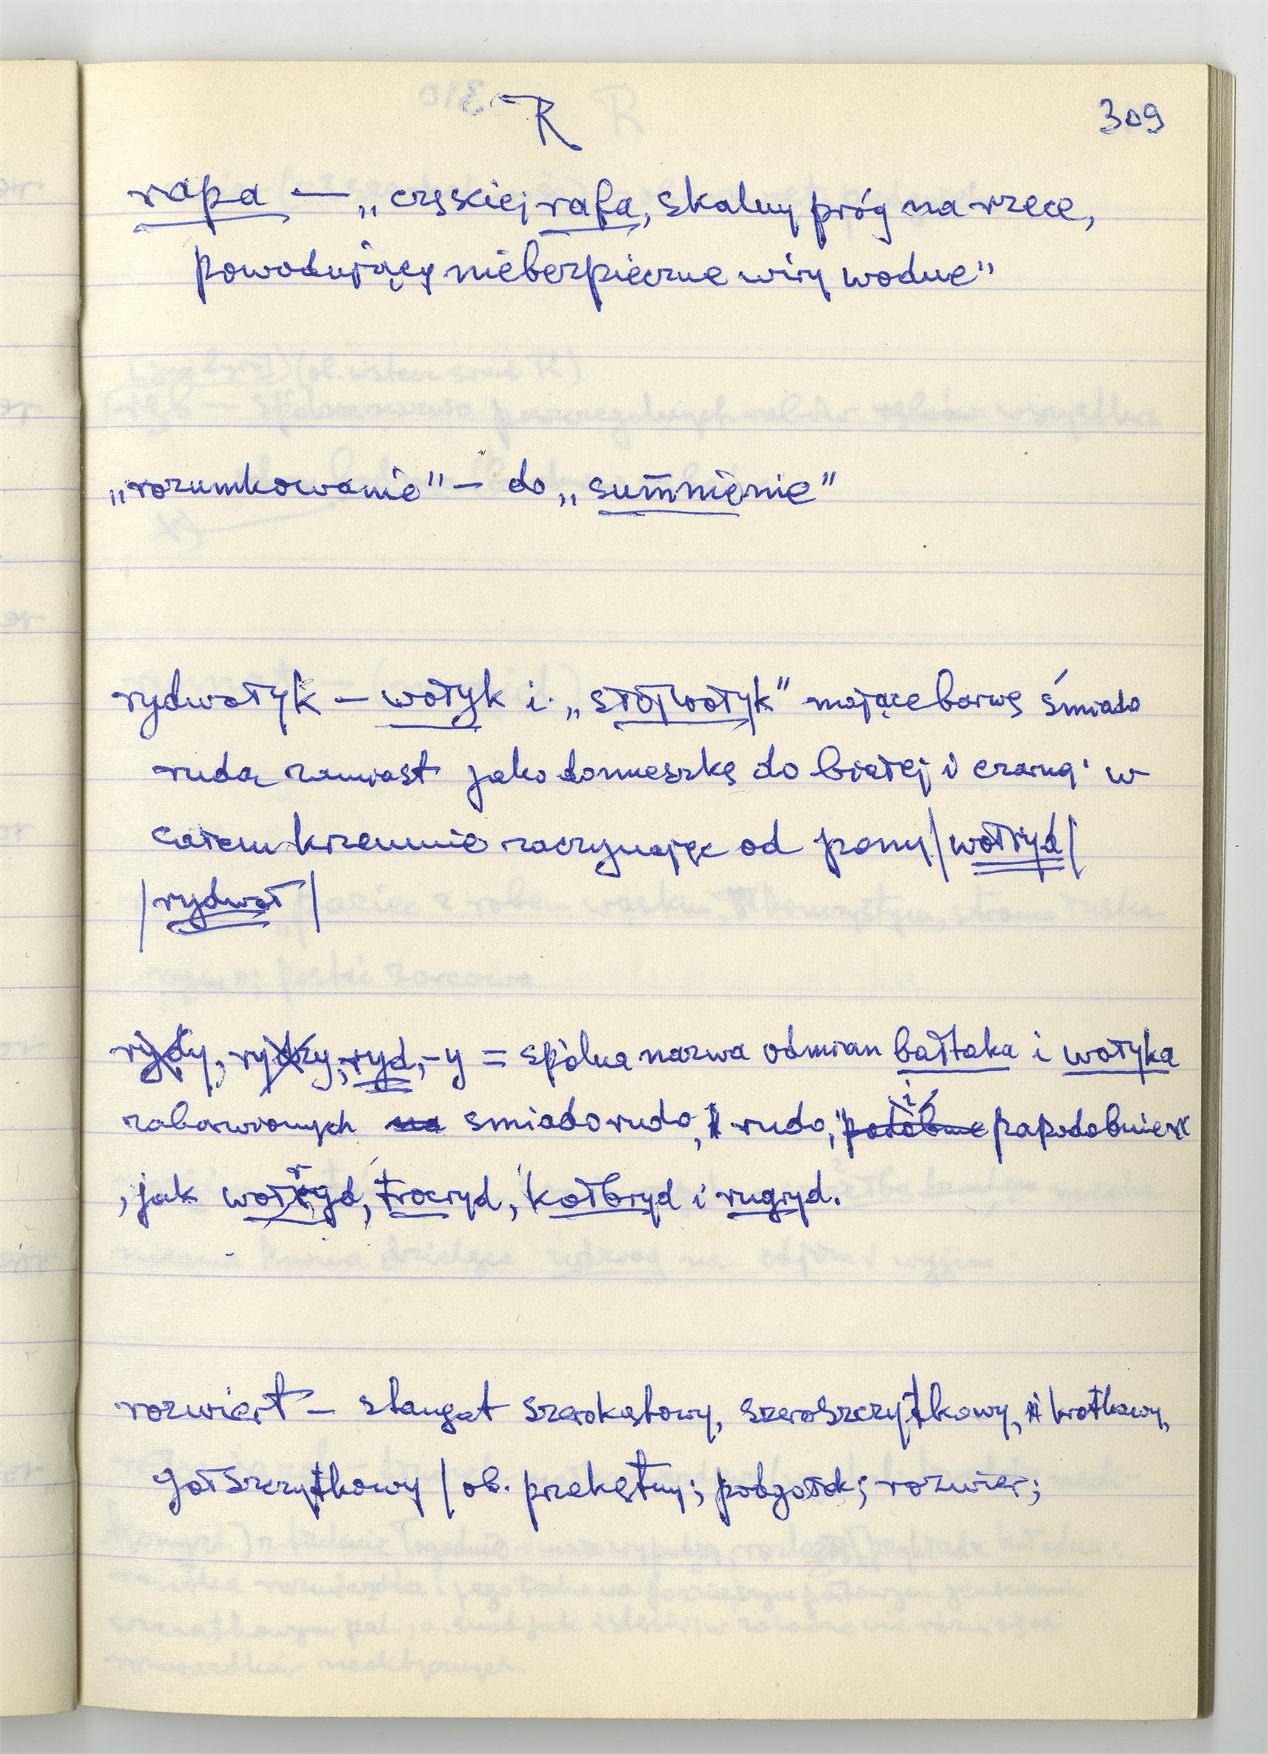 R
309
rapa — „częściej rafa, skalny próg na rzece,
powodujący niebezpieczne wiry wodne”
„rozumkowanie” – do „sumnienie”
rydwołyk – wołyk i „stołwołyk” mające barwę śmiado
rudą zamiast jako domieszkę do białej i czarną w
całem krzemnie zaczynając od jamy /wołryd/
/rydwoł/
rydy, rydzy, ryd, -y = spólna nazwa odmian bałtaka i wołyka
zabarwionych na smiadorudo, rudo, podobnie papodobnież
, jak wołryd, trocryd, kołbryd i rugryd.
rozwiert – stangat szerokątowy, szeroszczytkowy, krotkowy,
gołszczytkowy / ob. przekętny; podgołek; rozwier;